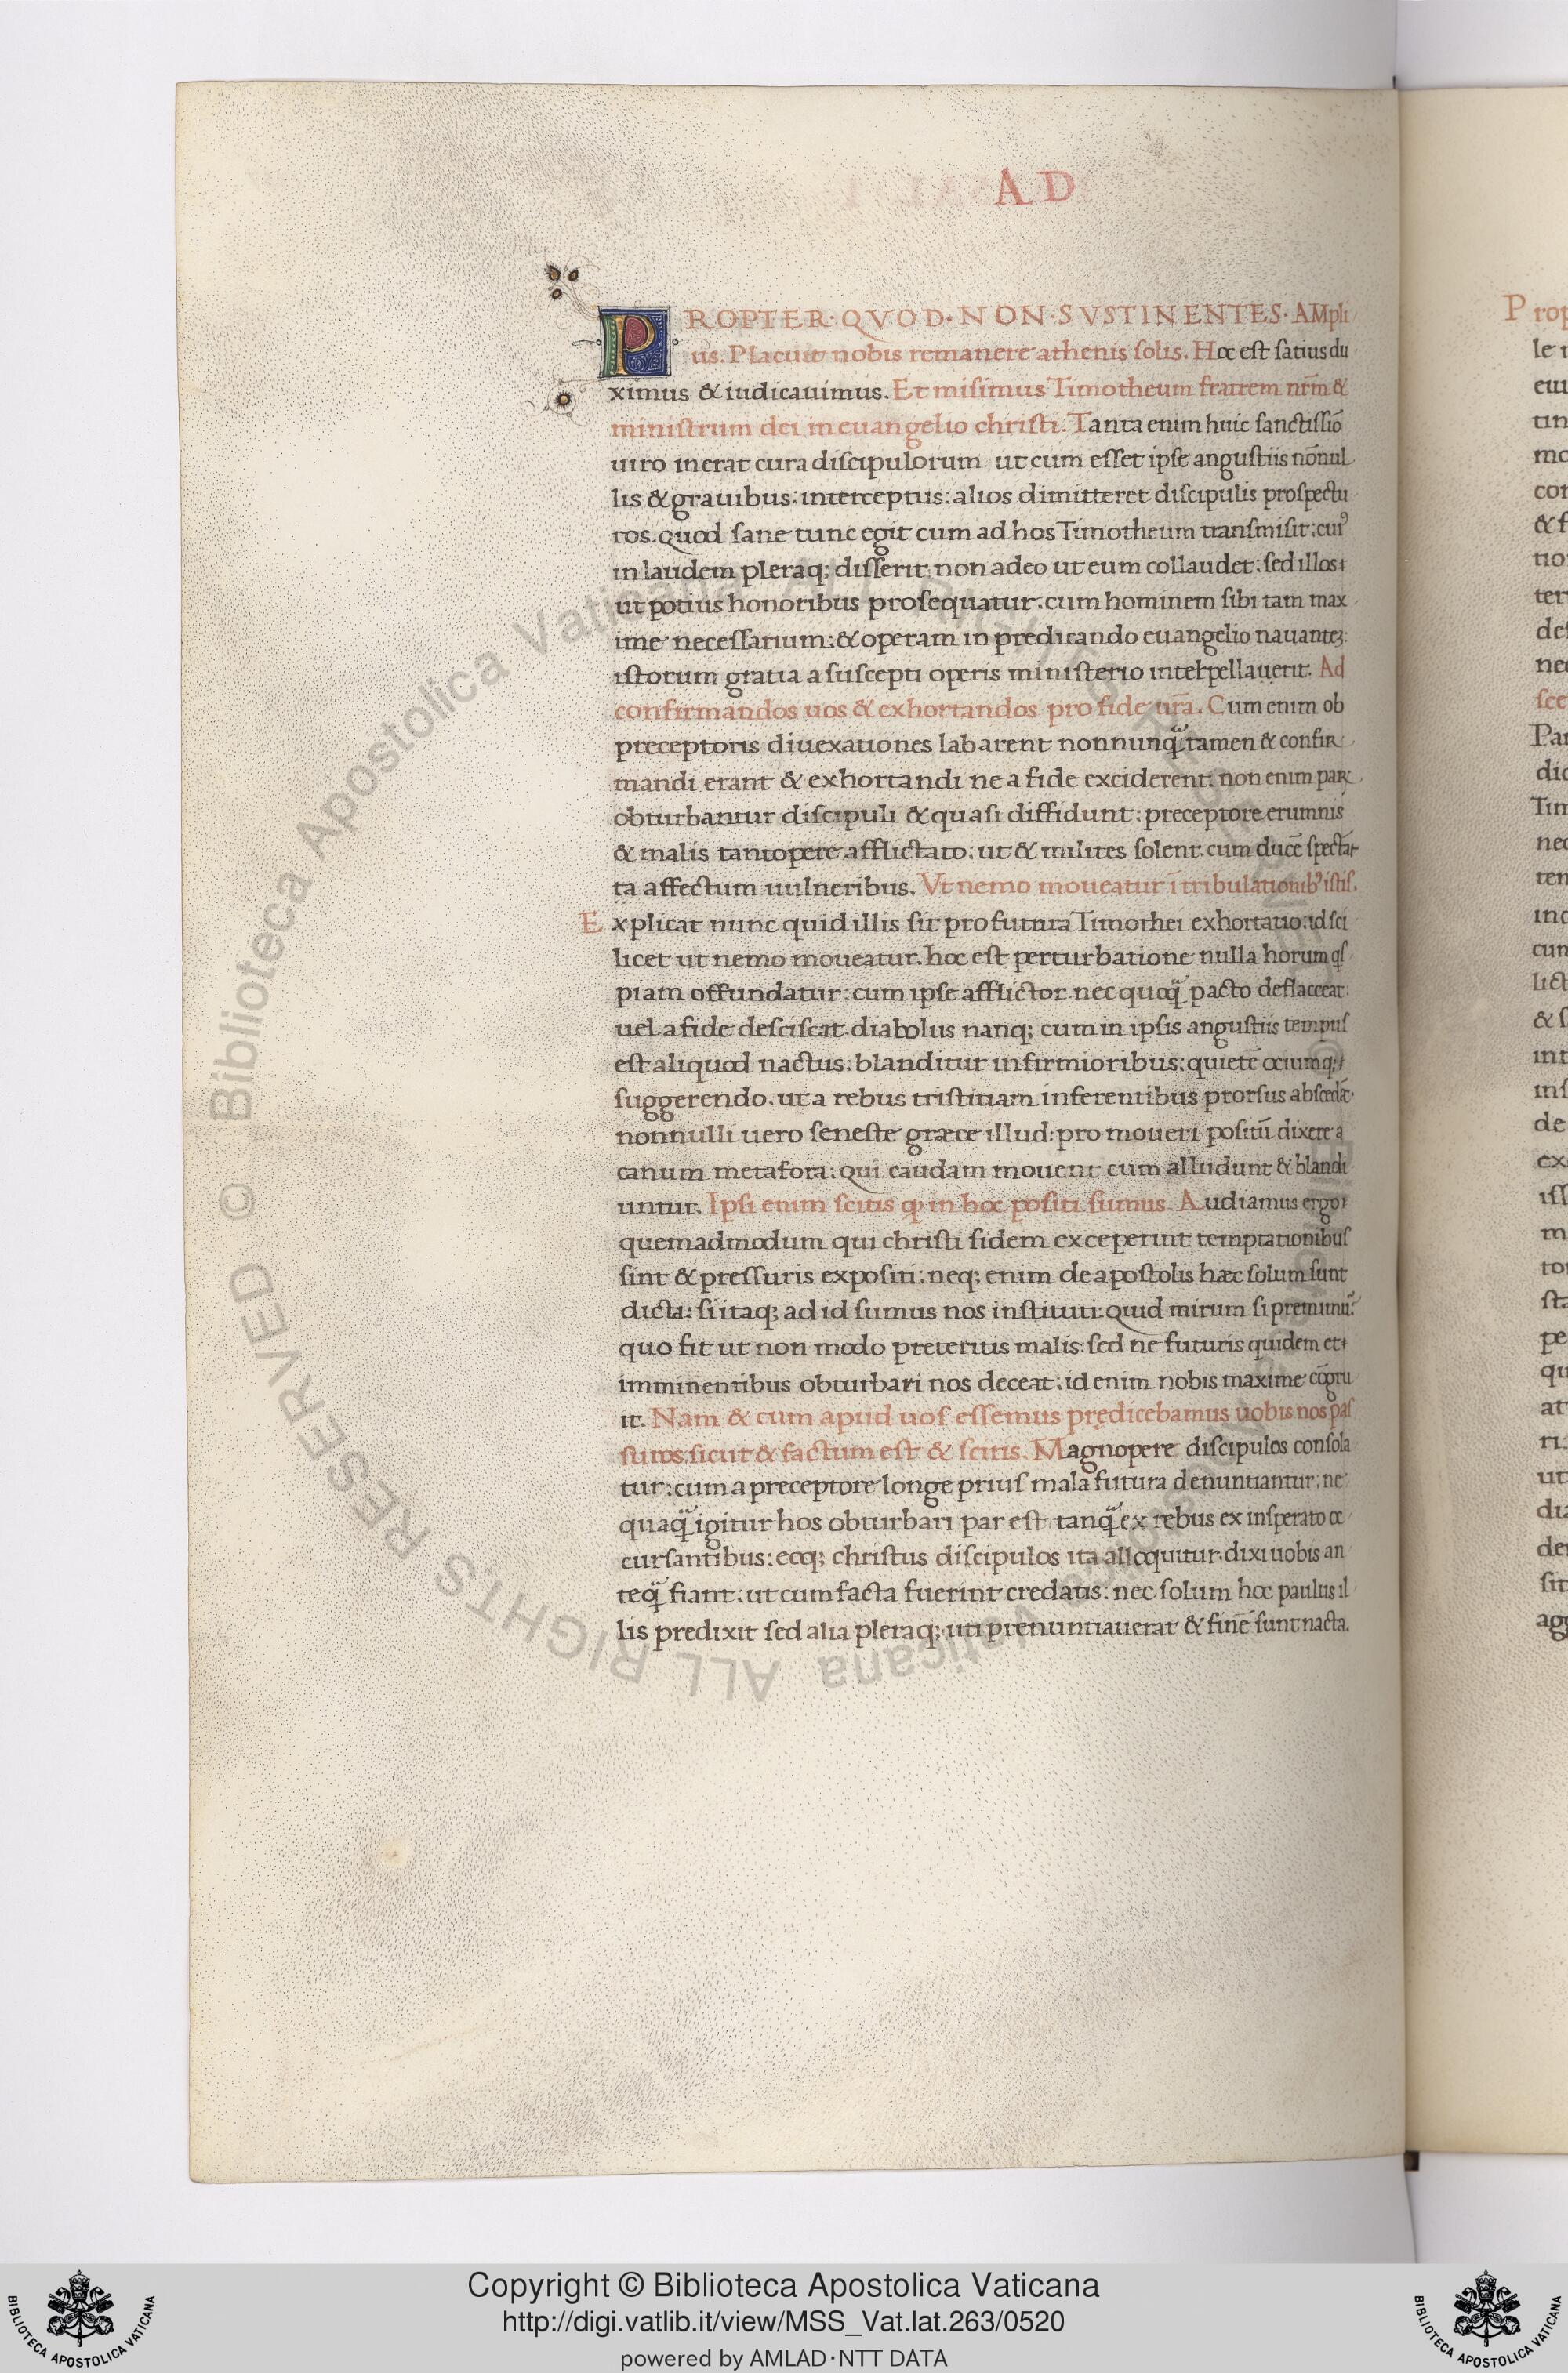 AD
PROPTER·QVOD·NON·SVSTINENTES·AMpli
us. Placuit nobis remanere athenis solis. Hoc est satius du
ximus & iudicauimus. Et misimus Timotheum fratrem nr̄m &
ministrum dei in euangelio christi. Tanta enim huic sanctissīo
uiro inerat cura discipulorum ut cum esset ipse angustiis nōnul
lis & grauibus: interceptus: alios dimitteret discipulis prospectu
ros. quod sane tunc egit cum ad hos Timotheum transmisit: cuiꝰ
in laudem pleraq; disserit. non adeo ut eum collaudet: sed illos
ut potius honoribus prosequatur. cum hominem sibi tam max
ime necessarium: & operam in predicando euangelio nauanteꝫ:
istorum gratia a suscepti operis ministerio interpellauerit. Ad
confirmandos uos & exhortandos pro fide ur̄a. Cum enim ob
preceptoris diuexationes labarent nonnunq̃. tamen & confir
mandi erant & exhortandi ne a fide exciderent. non enim parc
obturbantur discipuli & quasi diffidunt: preceptore erumnis
& malis tantopere afflictato: ut & milites solent. cum ducē spectāt
ta affectum uulneribus. Vt nemo moueatur ī tribulationibꝰ istis.
Explicat nunc quid illis sit profutura Timothei exhortatio: id sci
licet ut nemo moueatur. hoc est perturbatione nulla horum qs
piam offundatur: cum ipse afflictor. nec quoq̃ pacto deflacceat:
uel a fide desciscat. diabolus nanq; cum in ipsis angustiis tempus
est aliquod nactus: blanditur infirmioribus: quietē ociumq;
suggerendo. ut a rebus tristitiam inferentibus prorsus abscedāt.
nonnulli uero seneste græce illud: pro moueri positū dixere a
canum metafora: qui caudam mouent cum alludunt & blandi
untur. Ipsi enim scitis ꝙ in hoc positi sumus. Audiamus ergo
quemadmodum qui christi fidem exceperint temptationibus
sint & pressuris expositi: neq; enim de apostolis hæc solum sunt
dicta: si itaq; ad id sumus nos instituti. quid mirum si premimū?
quo fit ut non modo preteritis malis: sed ne futuris quidem et
imminentibus obturbari nos deceat. id enim nobis maxime cōgru
it. Nam & cum apud uos essemus prędicebamus uobis nos pas
suros: sicut & factum est & scitis. Magnopere discipulos consola
tur: cum a preceptore longe prius mala futura denuntiantur: ne
quaq̃ igitur hos obturbari par est tanq̃ ex rebus ex insperato oc
cursantibus: eoq; christus discipulos ita alloquitur. dixi uobis an
teq̃ fiant: ut cum facta fuerint credatis: nec solum hoc paulus il
lis predixit sed alia pleraq; uti prenuntiauerat & finē sunt nacta.
Copyright © Biblioteca Apostolica Vaticana
http://digi.vatlib.it/view/MSS_Vat.lat.263/0520
powered by AMLAD·NTT DATA
BIBLIOTECA APOSTOLICA VATICANA
BIBLIOTECA APOSTOLICA VATICANA